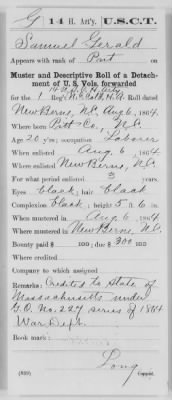 G 14 H. Art'y. U.S.C.T.
Samuel Gerald
Appears with rank of Pvt on
Muster and Descriptive Roll of a Detach-
ment of U. S. Vols. forwarded
14 U.S.C.H. Arty
for the 1 Reg't N.C. Col'd H.A. Roll dated
New Berne, N.C., Aug 6, 1864
Where born Pitt Co., N.C.
Age 20 y'rs; occupation Laborer
When enlisted Aug 6, 1864
Where enlisted New Berne, N.C.
For what period enlisted 3 years.
Eyes black; hair black
Complexion black; height 5 ft. 6 in.
When mustered in Aug 6, 1864
Where mustered in New Berne, N.C.
Bounty paid $ 100; due $ 300 100
Where credited
Company to which assigned
Remarks: Credited to State of
Massachusetts under
G.O. No. 227 series of 1864
War Dept.
Book mark:
Long
(339) Copyist.